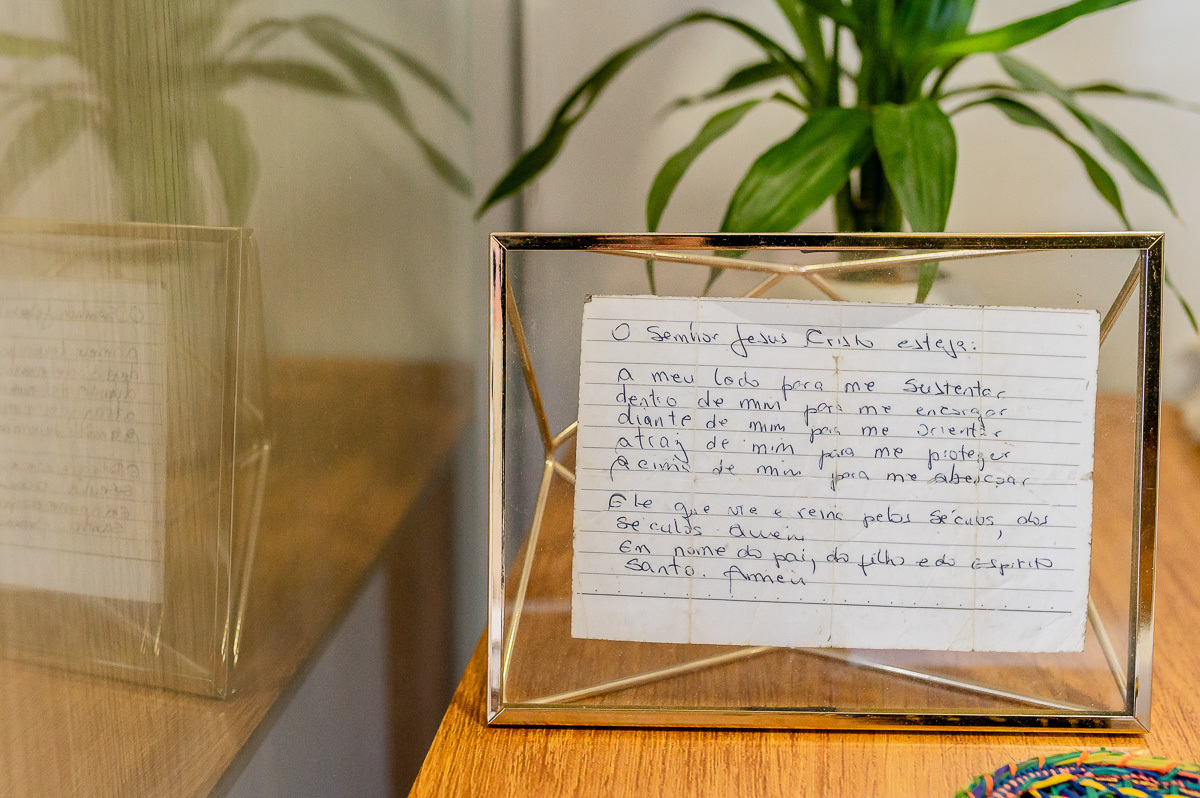 O Senhor Jesus Cristo esteja:
A meu lado para me sustentar
dentro de mim para me encorajar
diante de mim para me orientar
atraz de mim para me proteger
Acima de mim para me abençoar
Ele que vive e reina pelos séculos, dos
séculos Amém
Em nome do pai, do filho e do espirito
Santo. Amém